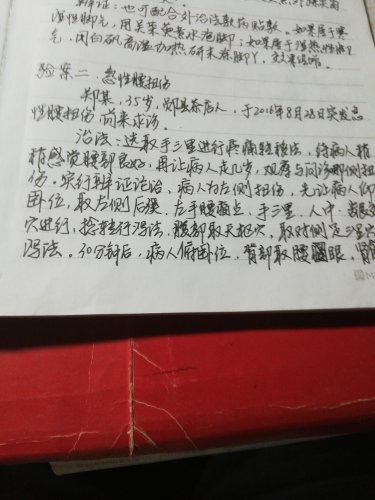 辩证:也可配合外治法敷药贴敷。如果属于寒
湿性脚气,用吴茱萸煮水泡脚;如果属于湿热性脚
气,用白矾高温加热研末卷脚丫,交
验案二、急性腰扭伤
郑某,35岁,郧县茶店人,于2016年8月28日突发急
性腰扭伤前来求诊。
治法:选取手三里进行疼痛转移法,待病人稍
稍感觉腰部良好,再让病人走几步,观察与问诊哪侧扭
伤。实行辩证论治,病人为左侧扭伤,先让病人仰
卧位,取左侧后溪、左手腰痛点、手三里、人中、龈交
穴进行,捻转行泻法,腹部取天枢穴,取对侧足三里穴
泻法。30分钟后,病人俯卧位,背部取腰眼、肾